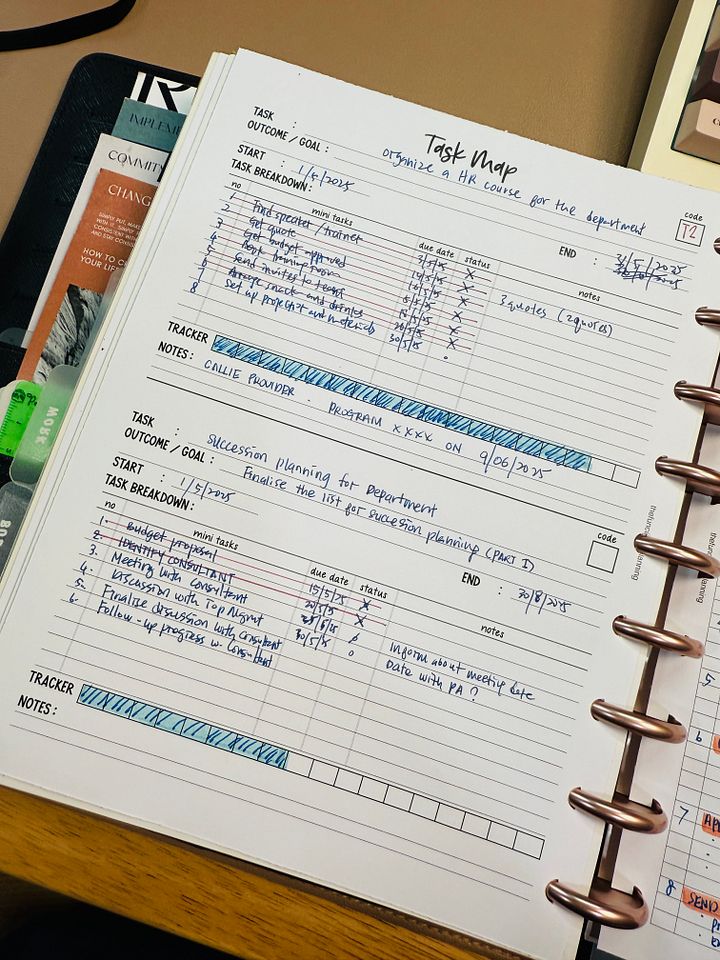 IMPLEME
COMMIT
CHANG
SIMPLY PUT, MAK
HOW TO C
YOUR LIF
WORK
Task Map
TASK :
OUTCOME / GOAL : organize a HR course for the department
code
T2
START : 1/5/2025
END : 31/5/2025
TASK BREAKDOWN :
no mini tasks due date status notes
1. Find speaker / trainer 3/5/25 X
2 Get quote 14/5/25 X 3 quotes (2quotes)
3 Get budget approved 16/5/25 X
4 Book training room X
5 Send invites to X
6 Arrange snack and drinks X
8 Set up projector and materials 30/5/25
TRACKER
NOTES : CALLIE PROVIDER : PROGRAM XXXX ON 9/06/2025
TASK : Succession planning for Department
OUTCOME / GOAL : Finalise the list for succession planning (PART I)
code
START : 1/5/2025
END : 30/8/2025
TASK BREAKDOWN :
no mini tasks due date status notes
1. Budget proposal 15/5/25 X
2. IDENTIFY CONSULTANT 20/5/25 X
3. Meeting with consultant Inform about meeting date
4. Discussion with Top Mgmt 30/5/25 Date with PA?
5. Finalise discussion with consultant
6. Follow-up progress w. consultant
TRACKER
NOTES :
5
6
7
8